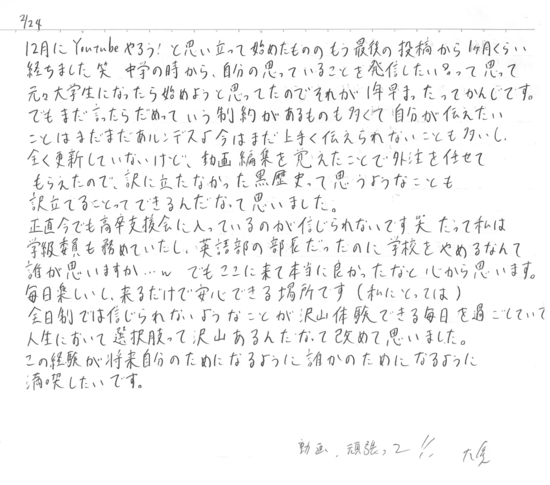 2/24
12月にYoutubeやろう!と思い立って始めたもののもう最後の投稿から1ヶ月くらい
経ちました笑 中学の時から、自分の思っていることを発信したいなって思って
元々大学生になったら始めようと思ってたのでそれが1年早まったってかんじです。
でもまだ言ったらだめっていう制約があるものも多くて自分が伝えたい
ことはまだまだあルンデス♪今はまだ上手く伝えられないことも多いし、
全く更新していないけど、動画編集を覚えたことで外注を任せて
もらえたので、訳に立たなかった黒歴史って思うようなことも
訳立てることってできるんだなって思いました。
正直今でも高卒支援会に入っているのが信じられないです笑 だって私は
学級委員も務めていたし、英語部の部長だったのに学校をやめるなんて
誰が思いますか…w でもここに来て本当に良かったなと心から思います。
毎日楽しいし、来るだけで安心できる場所です(私にとっては)
全日制では信じられないようなことが沢山体験できる毎日を過ごしていて
人生において選択肢って沢山あるんだなって改めて思いました。
この経験が将来自分のためになるように誰かのためになるように
満喫したいです。
動画、頑張って!!